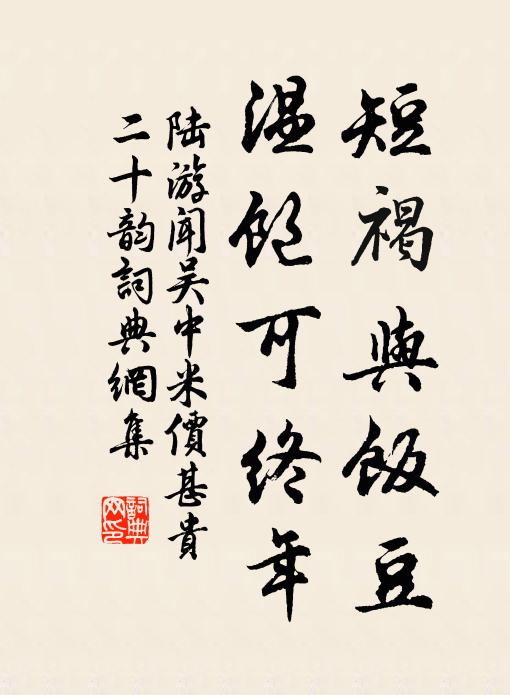 短褐與飯豆
溫飽可終年
陸游聞吳中米價甚貴
二十韵詞典網集
詞典
网印